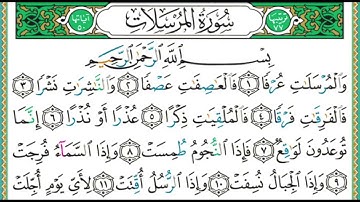 ترتيبها ٧٧ سُورَةُ المُرْسَلَات آياتها ٥٠
بِسْمِ ٱللَّهِ ٱلرَّحْمَٰنِ ٱلرَّحِيمِ
وَٱلْمُرْسَلَٰتِ عُرْفًا ١ فَٱلْعَٰصِفَٰتِ عَصْفًا ٢ وَٱلنَّٰشِرَٰتِ نَشْرًا ٣
فَٱلْفَٰرِقَٰتِ فَرْقًا ٤ فَٱلْمُلْقِيَٰتِ ذِكْرًا ٥ عُذْرًا أَوْ نُذْرًا ٦ إِنَّمَا
تُوعَدُونَ لَوَٰقِعٌ ٧ فَإِذَا ٱلنُّجُومُ طُمِسَتْ ٨ وَإِذَا ٱلسَّمَآءُ فُرِجَتْ
٩ وَإِذَا ٱلْجِبَالُ نُسِفَتْ ١٠ وَإِذَا ٱلرُّسُلُ أُقِّتَتْ ١١ لِأَيِّ يَوْمٍ أُجِّلَتْ